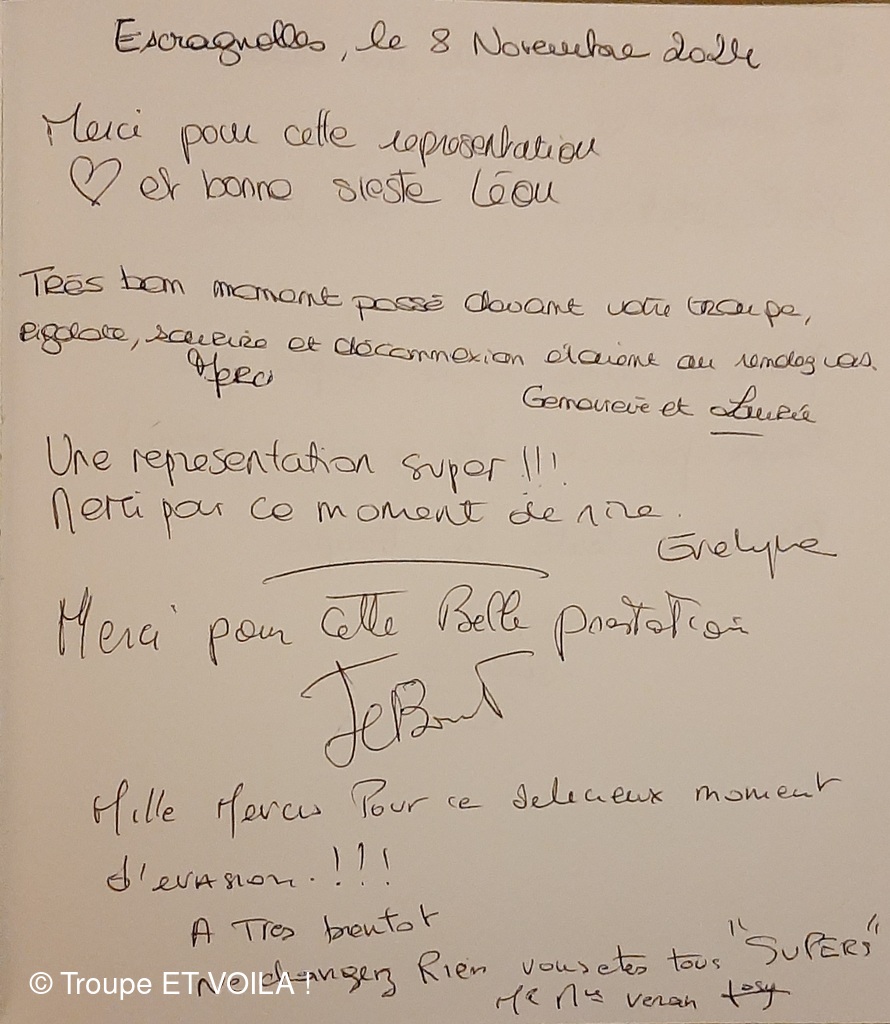 Escragnolles, le 8 Novembre 2024
Merci pour cette representation
♡ et bonne sieste Léon
Très bon moment passé devant votre troupe,
rigolade, sourire et déconnexion étaient au rendez vous.
Merci
Genevieve et
Une representation super !!!
Merci pour ce moment de rire.
Evelyne
Merci pour cette Belle prestation
Mille Mercis Pour ce delicieux moment
d'evasion.!!!
A Tres bientot
Ne changez Rien vous etes tous "SUPERS"
veran Josy
© Troupe ET VOILA !